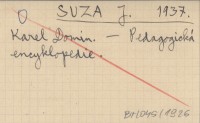 SUZA J. 1937.
Karel Domin. — Pedagogická
encyklopedie.
BH/045/1996